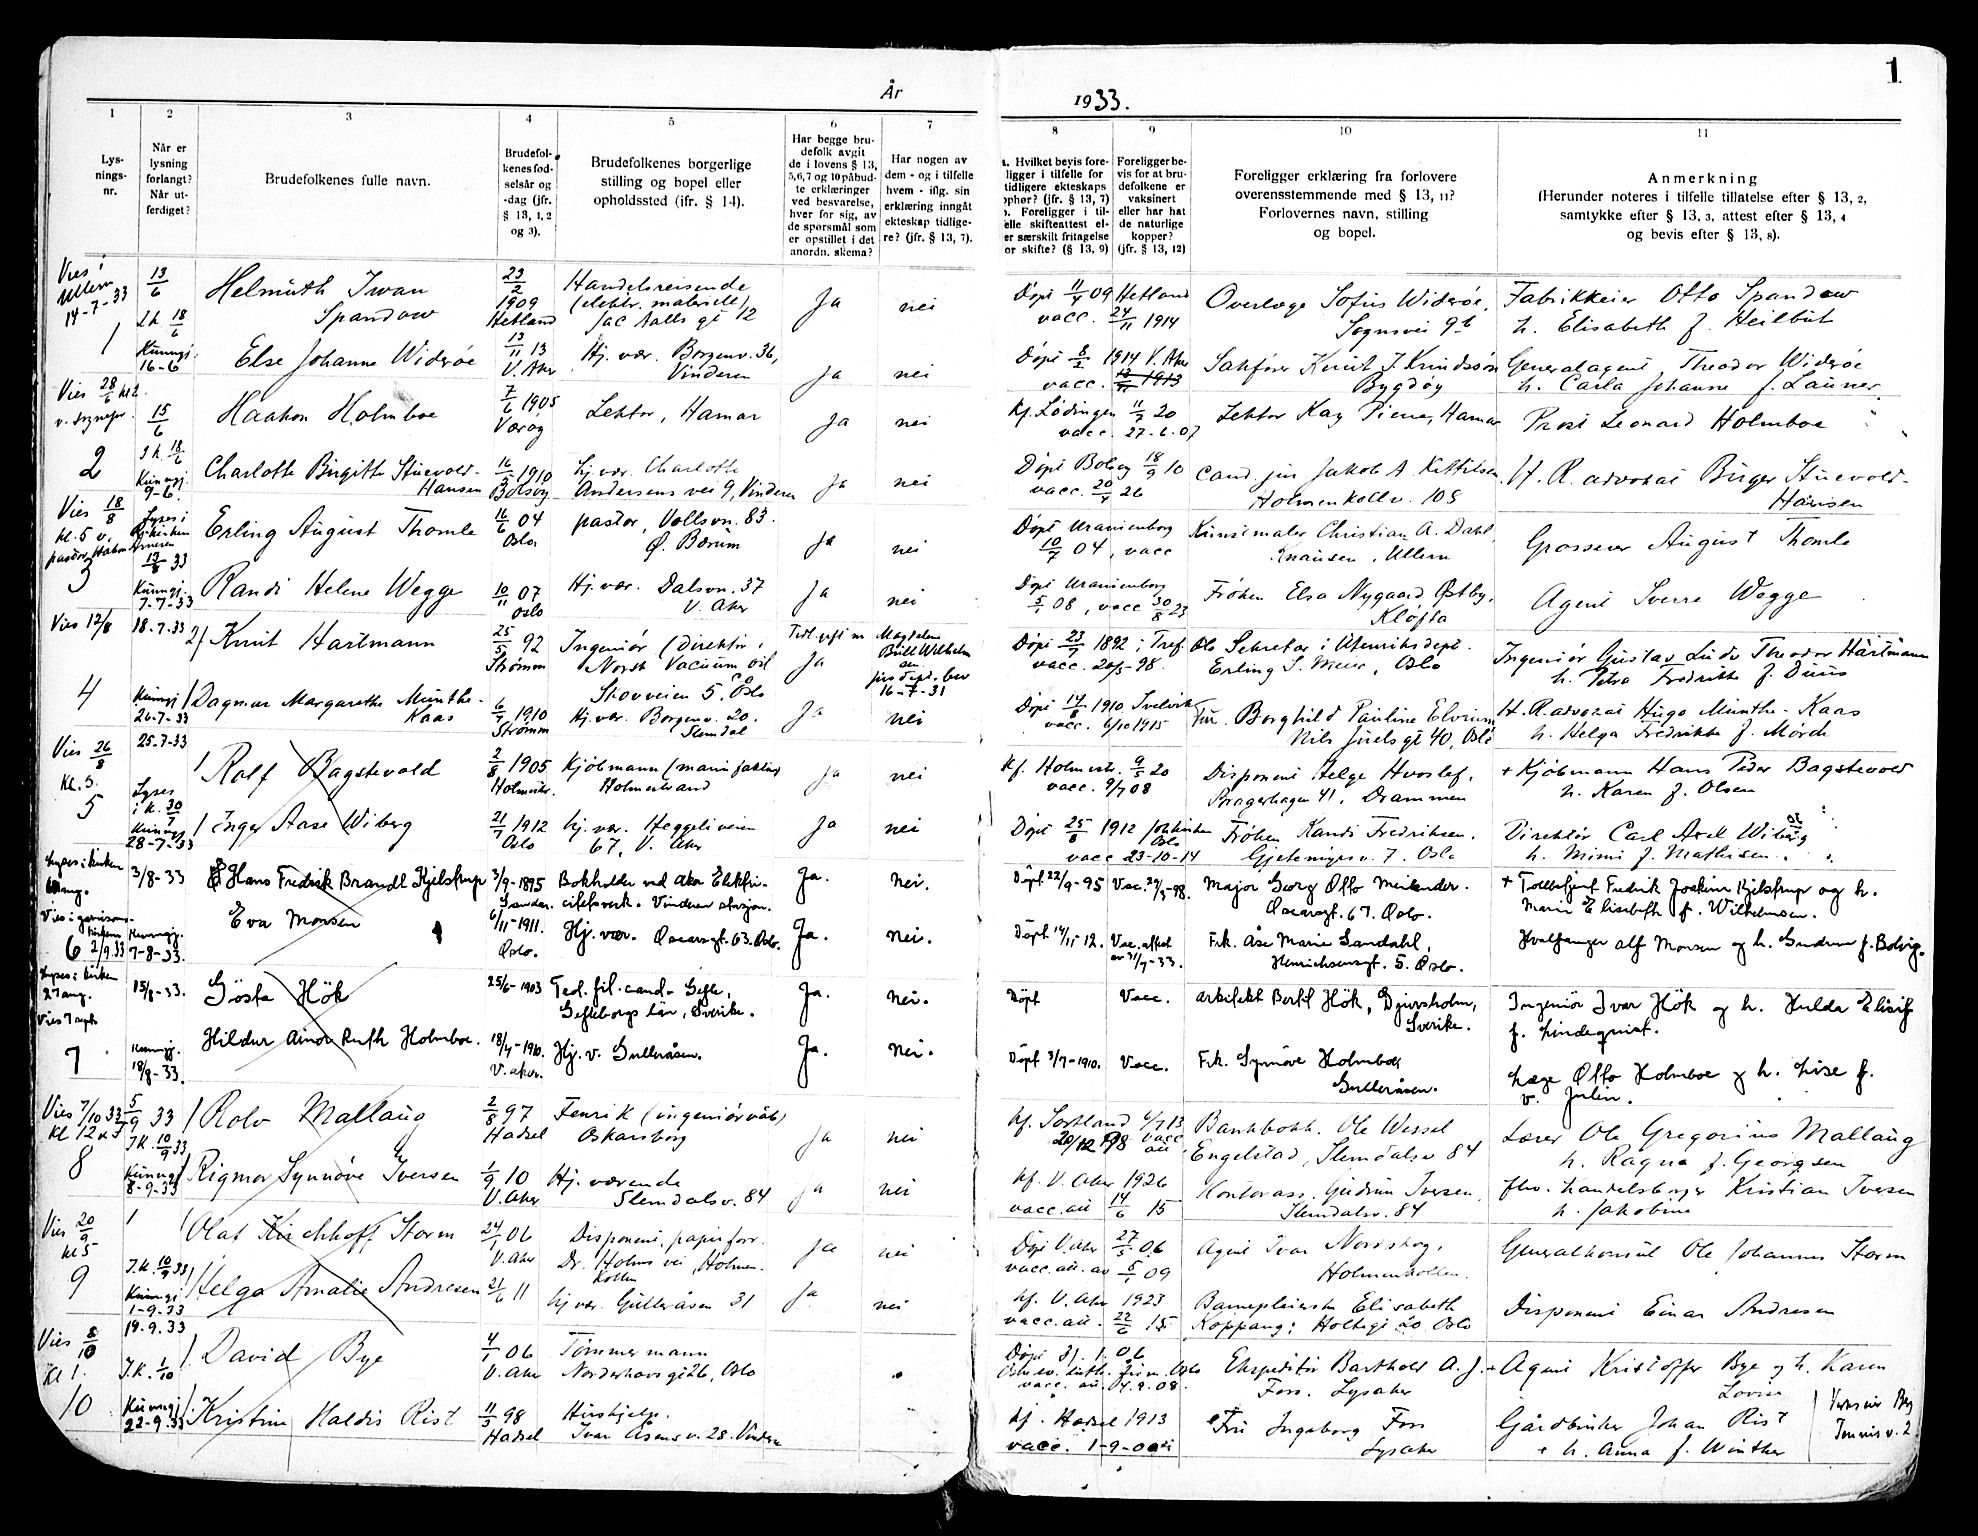 1
År 1933.
1 2 3 4 5 6 7 8 9 10 11
Lys-
nings-
nr.
Når er
lysning
forlangt?
Når ut-
ferdiget?
Brudefolkenes fulle navn.
Brudefol-
kenes fød-
selsår og
-dag (jfr.
§ 13, 1, 2
og 3).
Brudefolkenes borgerlige
stilling og bopel eller
opholdssted (jfr. § 14).
Har begge bru-
defolk avgit
de i lovens § 13,
5,6,7 og 10 påbud-
te erklæringer
ved besvarelse,
hver for sig, av
de spørsmål som
er opstillet i det
anordn. skema?
Har nogen av
dem - og i tilfelle
hvem - iflg. sin
erklæring inngåt
ekteskap tidlige-
re? (jfr. § 13, 7).
a. Hvilket bevis fore-
ligger i tilfelle for
tidligere ekteskaps
ophør? (jfr. § 13, 7)
b. Foreligger i til-
felle skifteattest el-
er særskilt fritagelse
for skifte? (§ 13, 9)
Foreligger be-
vis for at bru-
defolkene er
vaksinert
eller har hat
de naturlige
kopper?
(jfr. § 13, 12)
Foreligger erklæring fra forlovere
overensstemmende med § 13, 11?
Forlovernes navn, stilling
og bopel.
Anmerkning
(Herunder noteres i tilfelle tillatelse efter § 13, 2,
samtykke efter § 13, 3, attest efter § 13, 4
og bevis efter § 13, 8).
Vies i
Ullern
14-7-33
1
13/6
18/6
Kunngj.
16-6
Helmuth Iwan
Spandow
23/2
1909
Hetland
Handelsreisende
(elektr. materiell)
Jac Aalls gt 12
Ja
nei
Døpt 11/4 09 Hetland
vacc. 24/11 1914
Overlæge Sofus Widerøe,
Sognsvei 9b
Fabrikkeier Otto Spandow
h. Elisabeth f. Heilbut
Else Johanne Widerøe
13/11 13
V. Aker
Hj. vær. Borgenv. 36,
Vinderen
Ja
nei
Døpt 8/2 1914 V. Aker
vacc. 13/11 1913
Sakfører Knut J. Knudssøn
Bygdøy
Generalagent Theodor Widerøe
h. Carla Johanne f. Launer
Vies 28/6 kl 2
v. sognepr.
2
15/6
18/6
Kunngj.
9-6.
Haakon Holmboe
7/6 1905
Værøy
Lektor, Hamar
Ja
nei
Kf. Lødingen 11/7 20
vacc. 27-6-07
Lektor Kay Piene, Hamar
Prost Leonard Holmboe
Charlotte Birgitte Stuevold-
Hansen
16/5 1910
Bolsøy
Hj. vær. Charlotte
Andersens vei 9, Vinderen
Ja
nei
Døpt Bolsøy 18/9 10
vacc. 20/4 26
Cand. jur Jakob A Kittilsen
Holmenkollv. 105
H. R. advokat Birger Stuevold-
Hansen
Vies 18/8
kl. 5 v.
pastor
3
Lyses i
13/8 33
Kunngj.
7-7-33
Erling August Thomle
16/6 04
Oslo
pastor, Vollsvn. 83.
Ø. Bærum
Ja
nei
Døpt Uranienborg
10/7 04, vacc
Kunstmaler Christian A. Dahl
Knausen, Ullern
Grosserer August Thomle
Randi Helene Wegge
10/11 07
Oslo
Hj. vær. Dalsvn. 37
V. Aker
Ja
nei
Døpt Uranienborg
5/1 08, vacc 30/8 23
Frøken Elsa Nygaard Østby,
Kløfta
Agent Sverre Wegge
Vies 12/8
4
18-7-33
Kunngj
26-7-33
2/ Knut Hartmann
25/5 92
Strømm
Ingeniør (direktør i
Norsk Vacuum oil
Skovveien 5. Oslo
Tidl. gift m
Ja
Magdalene
Bull Wilhelmsen
just. dept. bev
16-7-31
Døpt 23/7 1892 i Tref.
vacc. 20/5-98.
Oslo Sekretær i Utenriksdept.
Erling S. Meier, Oslo
Ingeniør Gustav Ludv Theodor Hartmann
h. Petra Fredrikke f. Duus
1/ Dagmar Margarethe Munthe-
Kaas
6/7 1910
Strømm
Hj. vær. Borgenv. 20.
Slemdal
Ja
nei
Døpt 14/8 1910 Svelvik
vacc. 6/10 1915
Frk. Borghild Pauline Elvrum
Nils Juels gt 40, Oslo
H. R. advokat Hugo Munthe-Kaas
h. Helga Fredrikke f. Mørch
Vies 26/8
kl. 5.
5
25-7-33
Lyses
i k. 30/7
Kunngj
28-7-33
1 Rolf Bagstevold
2/8 1905
Holmestr.
Kjøbmann (manufaktur)
Holmestrand
Ja
nei
Kf. Holmestr. 9/5 20
vacc. 9/7 08
Disponent Helge Hvoslef,
Bragerhagen 41, Drammen
+ Kjøbmann Hans Peder Bagstevold
h. Karen f. Olsen
1 Inger Aase Wiberg
21/7 1912
Oslo
hj. vær. Heggeliveien
67, V. Aker
Ja
nei
Døpt 25/8 1912
Oslo
vacc 23-10-14
Frøken Randi Fredriksen.
Gjetemyrsv. 7. Oslo
Direktør Carl Axel Wiberg
h. Mimi f. Mathisen.
Lyses i kirken
Vies i garnisons-
kirken
2/9 33
6
3/8-33
Kunngj.
7-8-33.
Hans Fredrik Brandt Kjelstrup
3/9-1895
Bokholder ved Aker Elektri-
citetsverk. Vinderen stasjon.
Ja.
Nei.
Døpt 22/9-95
Vac. 29/5-98.
Major Georg Otto Meilænder.
Oscarsgt. 67. Oslo.
+ Tollbetjent Fredrik Joakim Kjelstrup og h.
Marie Elisabeth f. Wilhelmsen.
Eva Monsen
6/11-1911.
Oslo.
Hj. vær. Oscarsgt. 63. Oslo.
Ja.
Nei.
Døpt 14/11-12.
Vac. attest
av 31/7-33.
Frk. Åse Marie Sandahl,
Henrichsensgt. 5. Oslo.
Hvalfanger Alf Monsen og h. Gudrun f. Bolvig.
Lyses i kirken
27 aug.
Vies 7 sept.
7
15/8-33.
Kunngj.
18/8-33.
Gösta Hök
25/6-1903
Teol. fil. cand. Gefle,
Gefleborgs län, Sverike.
Ja.
Nei.
Døpt
Vacc.
Arkitekt Bertil Hök, Djursholm,
Sverike.
Ingeniör Ivar Hök og h. Hulda Elisif
f. Lindequist.
Hildur Ainor Ruth Holmboe.
18/4-1910.
V. Aker.
Hj. v. Gulleråsen.
Ja.
Nei.
Døpt 3/7-1910.
Vacc.
Frk. Synnöve Holmboe
Gulleråsen.
Læge Otto Holmboe og h. Lise f.
v. Julin.
Vies 7/10 33
8
5/9 33
I.K. 10/9 33
Kunngj
8-9-33
1 Rolv Mallaug
2/8 97
Hadsel
Fenrik (ingeniørvåb)
Oskarsborg
Ja
nei
Kf. Sortland 6/7 13
20/12 98 vacc
att
Bankbokh. Ole Wessel
Engelstad, Slemdalsv 84
Lærer Ole Gregorius Mallaug
h. Ragna f. Georgsen
Rigmor Synnøve Iversen
1/9 10
V. Aker
Hj. værende
Slemdalsv. 84
Ja
nei
Kf. V. Aker 1926
vacc. att 14/6 15
Kontorass. Gudrun Iversen,
Slemdalsv. 84
fhv. handelsborger Kristian Iversen
h. Jakobine
Vies 20/9
kl 5
9
1
I.K. 10/9 33
Kunngj
1-9-33
Olaf Kirchhoff Storm
24/1 06
V. Aker
Disponent, papirforr.
Dr. Holms vei, Holmen-
kollen
Ja
nei
Døpt V. Aker 27/5 06
vacc. att. av 5/1 09
Agent Ivar Nordskog,
Holmenkollen.
Generalkonsul Ole Johannes Storm
Helga Amalie Andresen
21/6 11
hj vær. Gulleråsen 31
Ja
nei
Kf. V. Aker 1923
vacc. att. 22/6 15
Barnepleierske Elisabeth
Koppang, Holtegt 20 Oslo
Disponent Einar Andresen
Vies 8/10
Kl 1.
10
19.9.33
I.K. 1/10
Kunngj
22-9.33
David Bye
4/1 06
V. Aker
Tømmermann
Norderhovsgt 26, Oslo
Døpt 31.1.06
Oslo
vacc. att. 4.9.08.
Ekspeditør Barthold A. J.
Foss. Lysaker
Agent Kristoffer Bye og h. Karen
Lovise
Kristine Haldis Rist
11/3 98
Hadsel
Hushjelp.
Ivar Åsens v. 28. Vinderen
Kf. Hadsel 1913
vacc. 1-9-00 att
Fru Ingeborg Foss
Lysaker
Gårdbruker Johan Rist
h. Anna f. Winther
Tennisv. 2